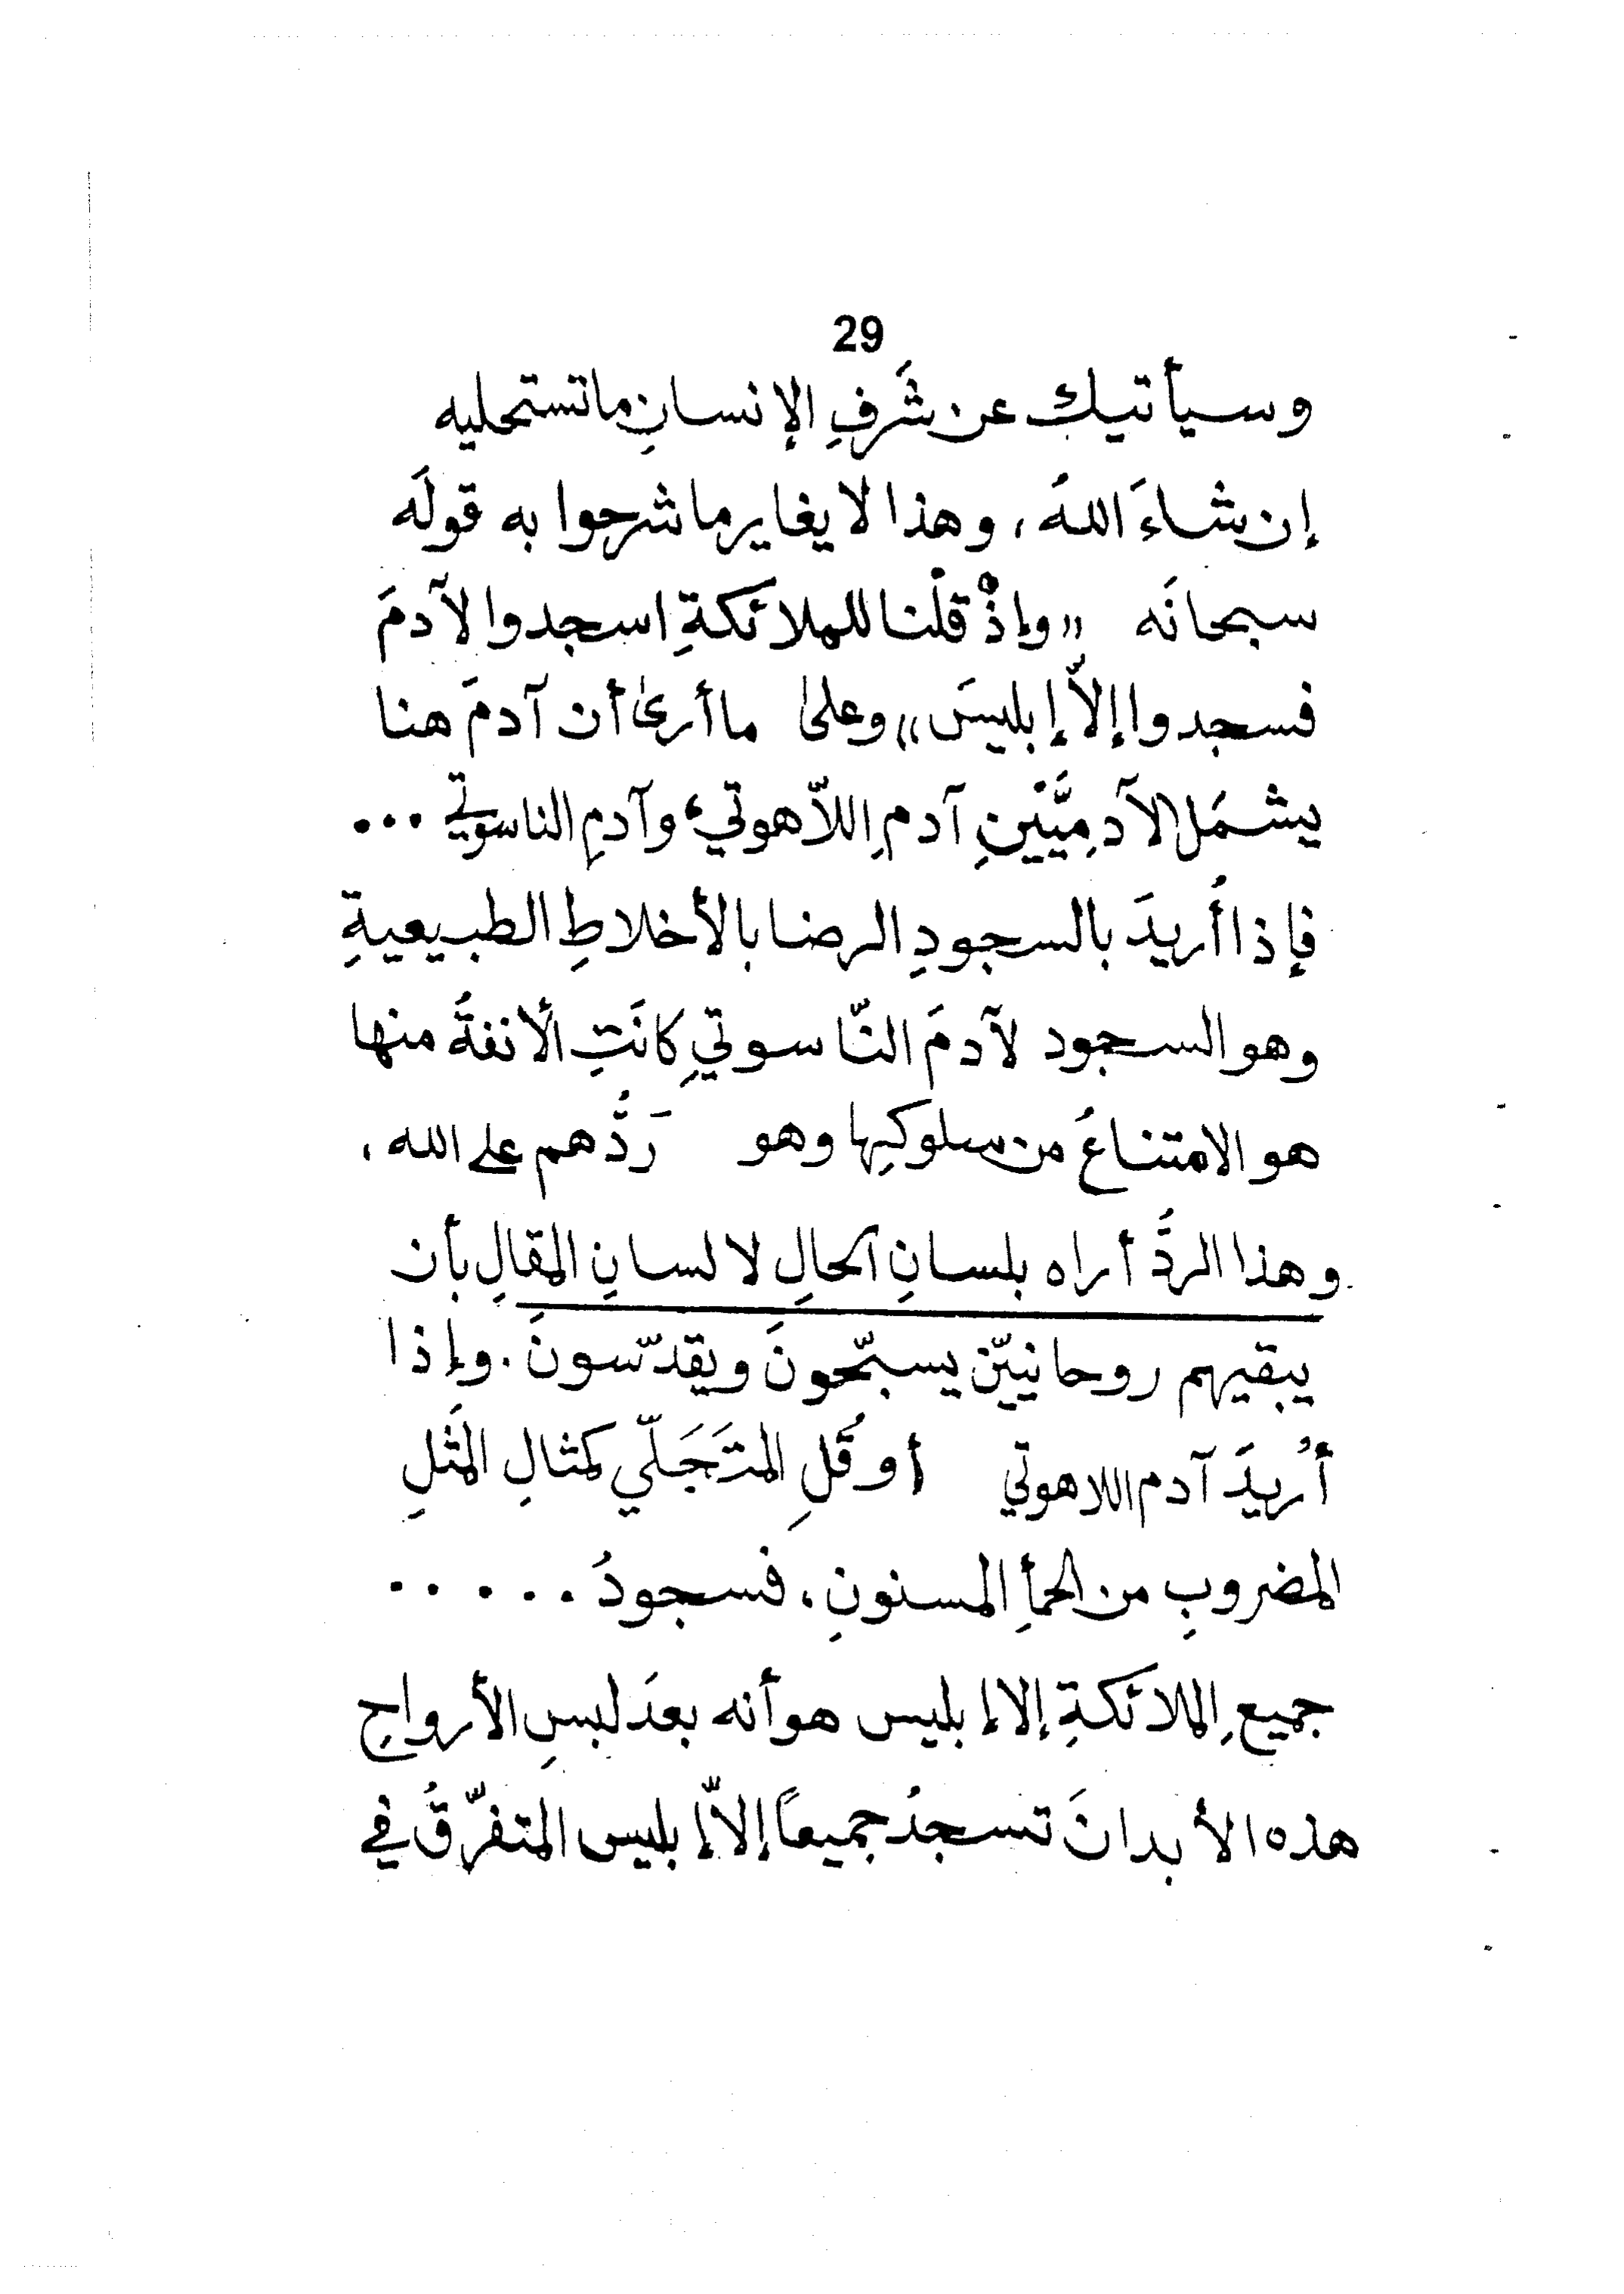 29
وسيأتيك عن شَرفِ الإنسانِ ما تستحليه
إن شاءَ اللهُ، وهذا لا يغاير ما شرحوا به قولَه
سبحانَه «وإذْ قلْنا للملائكةِ اسجدوا لآدمَ
فسجدوا إلاّ إبليسَ» وعلىٰ ما أرىٰ أن آدمَ هنا
يشمَل الآدمِيَّيْنِ آدمِ اللاّهوتيِ وآدمِ الناسوتيِ ...
فإذا أُريدَ بالسجودِ الرضا بالأخلاطِ الطبيعيةِ
وهو السجود لآدمَ النّاسوتيِ كانَتِ الأنفةُ منها
هو الامتناعُ من سلوكِها وهو رَدُّهم على الله،
وهذا الردُّ أراه بلسانِ الحالِ لا لسانِ المقالِ بأن
يبقيهم روحانيّين يسبّحونَ ويقدّسونَ. وإذا
أُريدَ آدم اللاهوتي أو قُلِ المتَجَلّي كمثالِ المثَلِ
المضروبِ من الحمأِ المسنونِ، فسجودُ .....
جميعِ الملائكةِ إلا إبليس هو أنه بعدَ لبسِ الأرواحِ
هذه الأبدانَ تسجدُ جميعاً إلاّ إبليس المتفرّقُ في